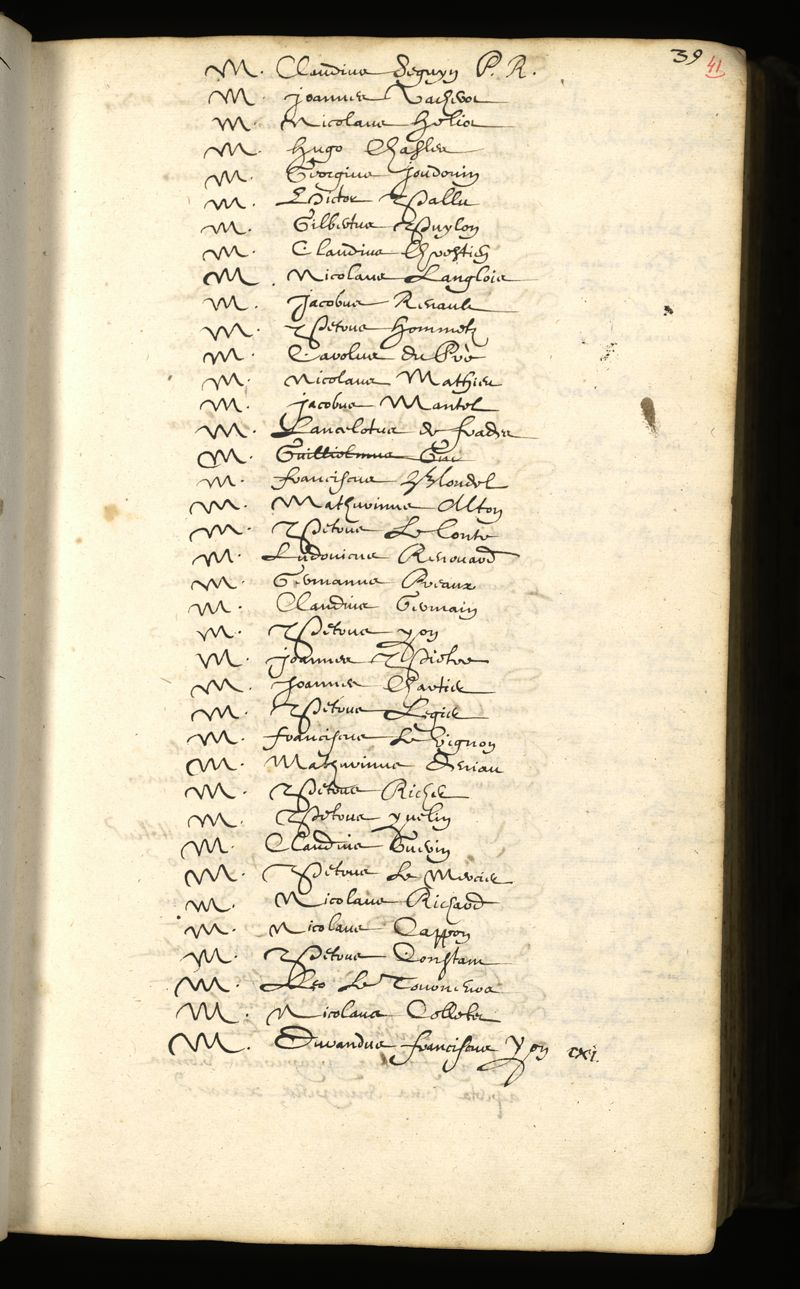 39 41
M. Claudius Seguyn P. R.
M. Joannes Vacherot
M. Nicolaus Heliot
M. Hugo Chasles
M. Georgius Joudouin
M. Victor Pallu
M. Gilbertus Puylon
M. Claudius Chrestien
M. Nicolaus Langlois
M. Jacobus Renault
M. Petrus Hommetz
M. Carolus du Pré
M. Nicolaus Mathieu
M. Jacobus Mantel
M. Lancelotus de frades
M. Guillielmus Guie
M. franciscus Blondel
M. Mathurinus Alton
M. Petrus Le Conte
M. Ludovicus Renouard
M. Germanus Preaux
M. Claudius Germain
M. Petrus yon
M. Joannes Pietre
M. Joannes Chartier
M. Petrus Legier
M. franciscus Le Vignon
M. Mathurinus Deriau
M. Petrus Richer
M. Petrus yvelin
M. Claudius Guerin
M. Petrus Le Mercier
M. Nicolaus Richard
M. Nicolaus Cappon
M. Petrus Constant
M. Leo Le Tourneurs
M. Nicolaus Colletet
M. Durandus franciscus Yon cxi.